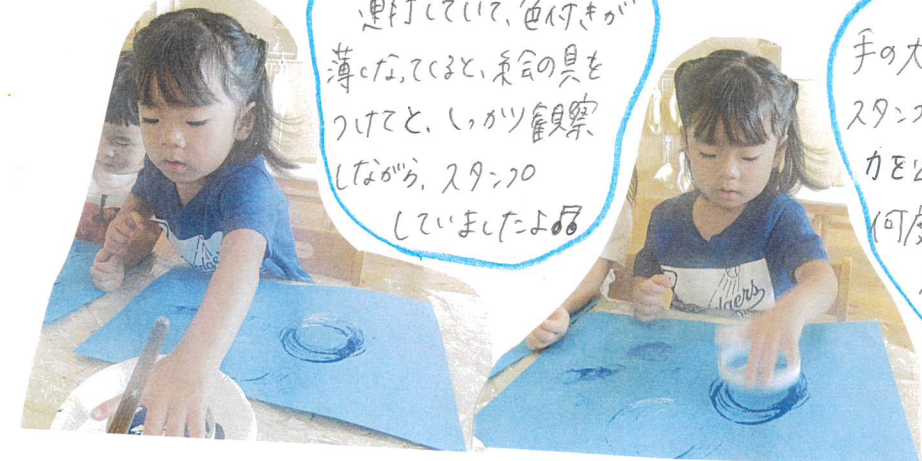 連打していて、色付きが
薄くなってくると、絵の具を
つけてと、しっかり観察
しながら、スタンプ
していましたよ♫
手の大
スタンプ
力を
何度
dgers